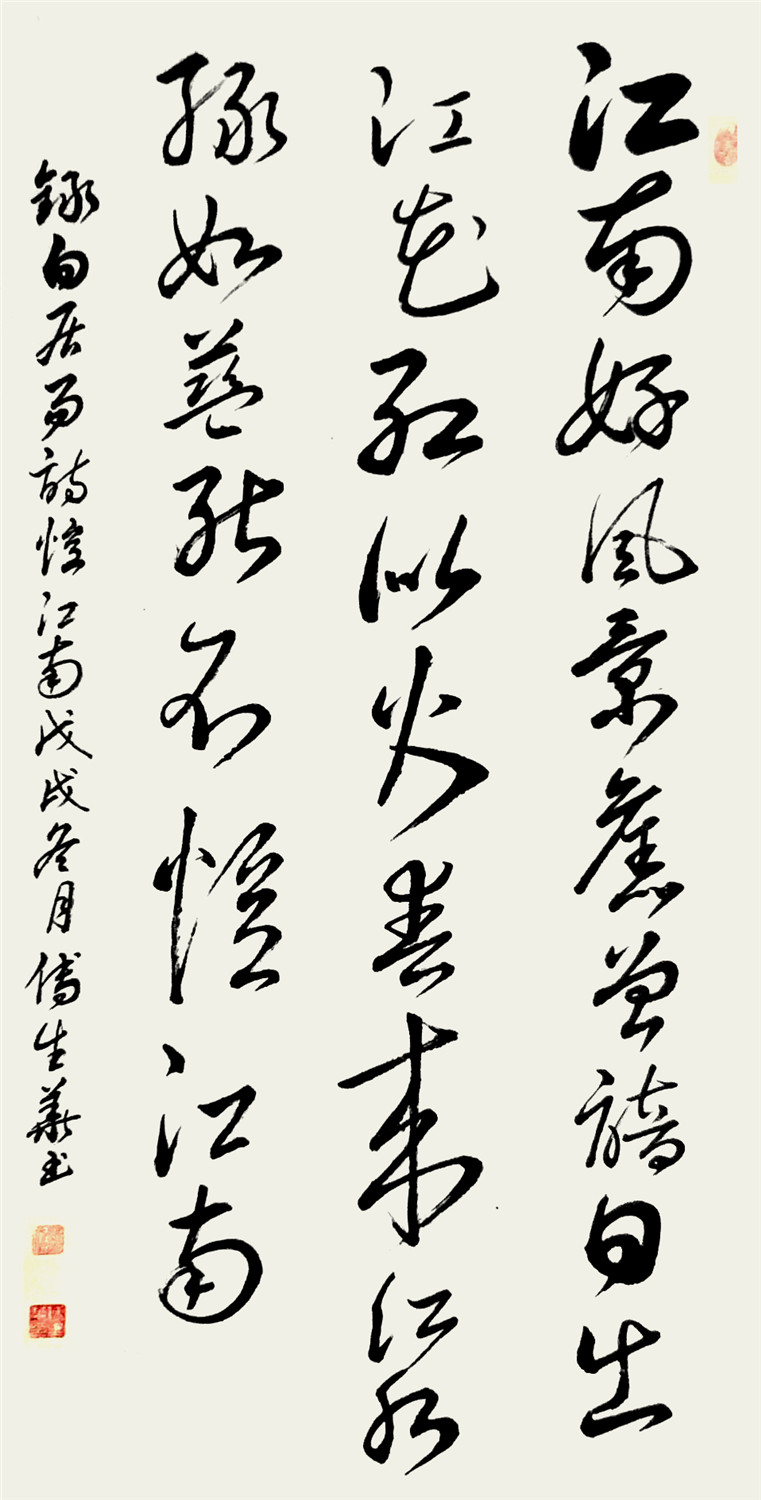 江南好風景舊曾諳日出
江花紅似火春来江水
綠如藍能不憶江南
錄白居易詩憶江南戊戌冬月傅生書